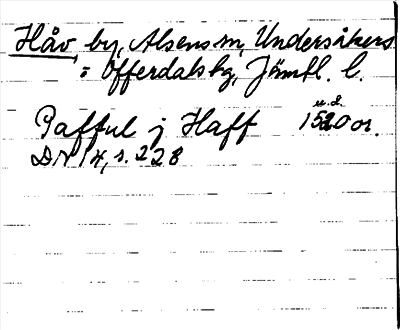 Håv, by, Alsens sn, Undersåkers
o Offerdals hg, Jämtl. l.
u.d.
Pafful j Haff 1520 or.
DN 14, s. 228